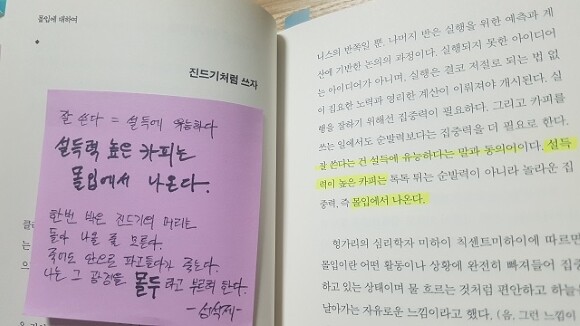 몰입에 대하여
진드기처럼 쓰자
잘 쓴다 = 설득에 유능하다
설득력 높은 카피는
몰입에서 나온다.
한번 박은 진드기의 머리는
돌아 나올 줄 모른다.
죽어도 안으로 파고들다가 죽는다.
나는 그 광경을 몰두라고 부르려 한다.
-성석제-
니스의 반쪽일 뿐. 나머지 반은 실행을 위한 예측과 계
산에 기반한 논의의 과정이다. 실행되지 못한 아이디어
는 아이디어가 아니며, 실행은 결코 저절로 되는 법 없
이 집요한 노력과 영리한 계산이 이뤄져야 개시된다. 실
행을 잘하기 위해선 집중력이 필요하다. 그리고 카피를
쓰는 일에서도 순발력보다는 집중력을 더 필요로 한다.
잘 쓴다는 건 설득에 유능하다는 말과 동의어이다. 설득
력이 높은 카피는 톡톡 튀는 순발력이 아니라 놀라운 집
중력, 즉 몰입에서 나온다.
헝가리의 심리학자 미하이 칙센트미하이에 따르면
몰입이란 어떤 활동이나 상황에 완전히 빠져들어 집중
하고 있는 상태이며 물 흐르는 것처럼 편안하고 하늘을
날아가는 자유로운 느낌이라고 했다. (음, 그런 느낌이